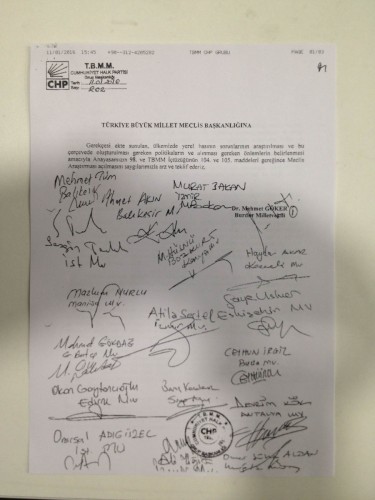 11/01/2016 15:45
TBMM CHP GRUBU
PAGE 01/03
T.B.M.M.
CUMHURİYET HALK PARTİSİ
Grup Başkanlığı
Tarih
Sayı
CHP
TÜRKİYE BÜYÜK MİLLET MECLİS BAŞKANLIĞINA
Gerekçesi ekte sunulan, ülkemizde yerel basının sorunlarının araştırılması ve bu
çerçevede oluşturulması gereken politikaların ve alınması gereken önlemlerin belirlenmesi
amacıyla Anayasamızın 98. ve TBMM İçtüzüğünün 104. ve 105. maddeleri gereğince Meclis
Araştırması açılmasını saygılarımızla arz ve teklif ederiz.
Dr. Mehmet GÖKER
Burdur Milletvekili
Mehmet Tüm
Balıkesir
Ahmet Akın
Balıkesir M
MURAT BAKAN
İZMİR
İst Mv
M. HÜSNÜ
BOZKURT
Haydar Akar
Kocaeli mv.
Mazlum NURLU
Manisa mv.
Atila Sertel
İzmir Mv.
Eskişehir MV
CEYHUN İRGİL
Bursa mv.
Okan Gaytancıoğlu
Edirne Mv
ANTALYA MV
Onursal ADIGÜZEL
İst
T.B.M.M.
CHP